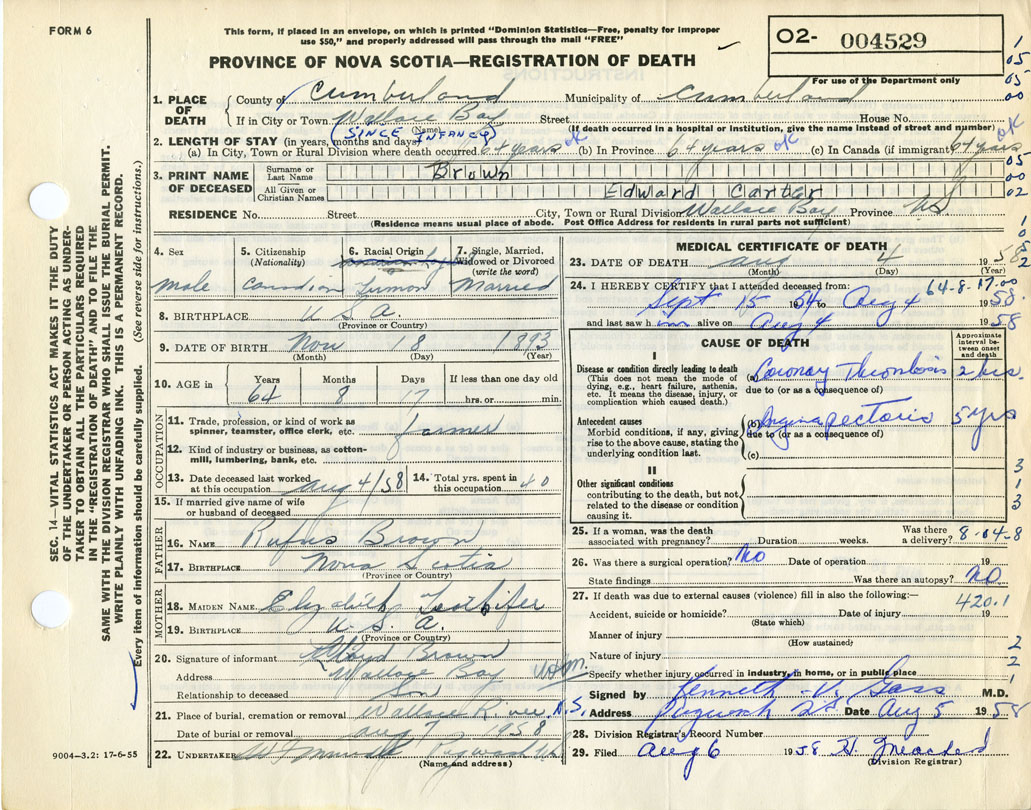 FORM 6
This form, if placed in an envelope, on which is printed "Dominion Statistics—Free, penalty for improper
use $50," and properly addressed will pass through the mail "FREE"
02- 004529
For use of the Department only
PROVINCE OF NOVA SCOTIA—REGISTRATION OF DEATH
1. PLACE OF DEATH
County of Cumberland Municipality of Cumberland
If in City or Town Wallace Bay Street House No.
(Name) (If death occurred in a hospital or institution, give the name instead of street and number)
(SINCE INFANCY)
2. LENGTH OF STAY (in years, months and days)
(a) In City, Town or Rural Division where death occurred 64 years ok (b) In Province 64 years ok (c) In Canada (if immigrant) 64 years ok
3. PRINT NAME OF DECEASED
Surname or Last Name Brown
All Given or Christian Names Edward Carter
RESIDENCE No. Street City, Town or Rural Division Wallace Bay Province NS
(Residence means usual place of abode. Post Office Address for residents in rural parts not sufficient)
4. Sex male
5. Citizenship (Nationality) Canadian
6. Racial Origin
7. Single, Married, Widowed or Divorced (write the word) Married
8. BIRTHPLACE U S A.
(Province or Country)
9. DATE OF BIRTH Nov 18 1893
(Month) (Day) (Year)
10. AGE in Years 64 Months 8 Days 17 If less than one day old hrs. or min.
OCCUPATION
11. Trade, profession, or kind of work as spinner, teamster, office clerk, etc. farmer
12. Kind of industry or business, as cotton-mill, lumbering, bank, etc.
13. Date deceased last worked at this occupation Aug 4/58
14. Total yrs. spent in this occupation 40
15. If married give name of wife or husband of deceased
FATHER
16. NAME Rufus Brown
17. BIRTHPLACE Nova Scotia
(Province or Country)
MOTHER
18. MAIDEN NAME Elizabeth
19. BIRTHPLACE U. S. A.
(Province or Country)
20. Signature of informant Lloyd Brown
Address Wallace Bay
Relationship to deceased Son
21. Place of burial, cremation or removal Wallace River N.S.
Date of burial or removal aug 7 1958
22. UNDERTAKER Pugwash
(Name and address)
MEDICAL CERTIFICATE OF DEATH
23. DATE OF DEATH aug 4 1958
(Month) (Day) (Year)
64-8-17-00
24. I HEREBY CERTIFY that I attended deceased from:
Sept 15 1954 to Aug 4 1958
and last saw him alive on Aug 4 1958
CAUSE OF DEATH
Approximate interval between onset and death
I
Disease or condition directly leading to death
(This does not mean the mode of dying, e.g., heart failure, asthenia, etc. It means the disease, injury, or complication which caused death.)
(a) Coronary Thrombosis 2 hrs.
due to (or as a consequence of)
Antecedent causes
Morbid conditions, if any, giving rise to the above cause, stating the underlying condition last.
(b) Angina pectoris 5 yrs
due to (or as a consequence of)
(c)
II
Other significant conditions
contributing to the death, but not related to the disease or condition causing it.
25. If a woman, was the death associated with pregnancy? Duration weeks. Was there a delivery? 8-04-8
26. Was there a surgical operation? No Date of operation 19
State findings Was there an autopsy? NO
27. If death was due to external causes (violence) fill in also the following:—
420.1
Accident, suicide or homicide? Date of injury 19
(State which)
Manner of injury
(How sustained)
Nature of injury
Specify whether injury occurred in industry, in home, or in public place
Signed by Kenneth V. Gass M.D.
Address Pugwash N.S. Date Aug 5 1958
28. Division Registrar's Record Number
29. Filed Aug 6 1958
(Division Registrar)
SEC. 14—VITAL STATISTICS ACT MAKES IT THE DUTY
OF THE UNDERTAKER OR PERSON ACTING AS UNDER-
TAKER TO OBTAIN ALL THE PARTICULARS REQUIRED
IN THE "REGISTRATION OF DEATH" AND TO FILE THE
SAME WITH THE DIVISION REGISTRAR WHO SHALL ISSUE THE BURIAL PERMIT.
WRITE PLAINLY WITH UNFADING INK. THIS IS A PERMANENT RECORD.
Every item of information should be carefully supplied. (See reverse side for instructions.)
9004—3.2: 17-6-55
1
05
05
00
05
00
02
1
0
2
3
1
3
2
2
1